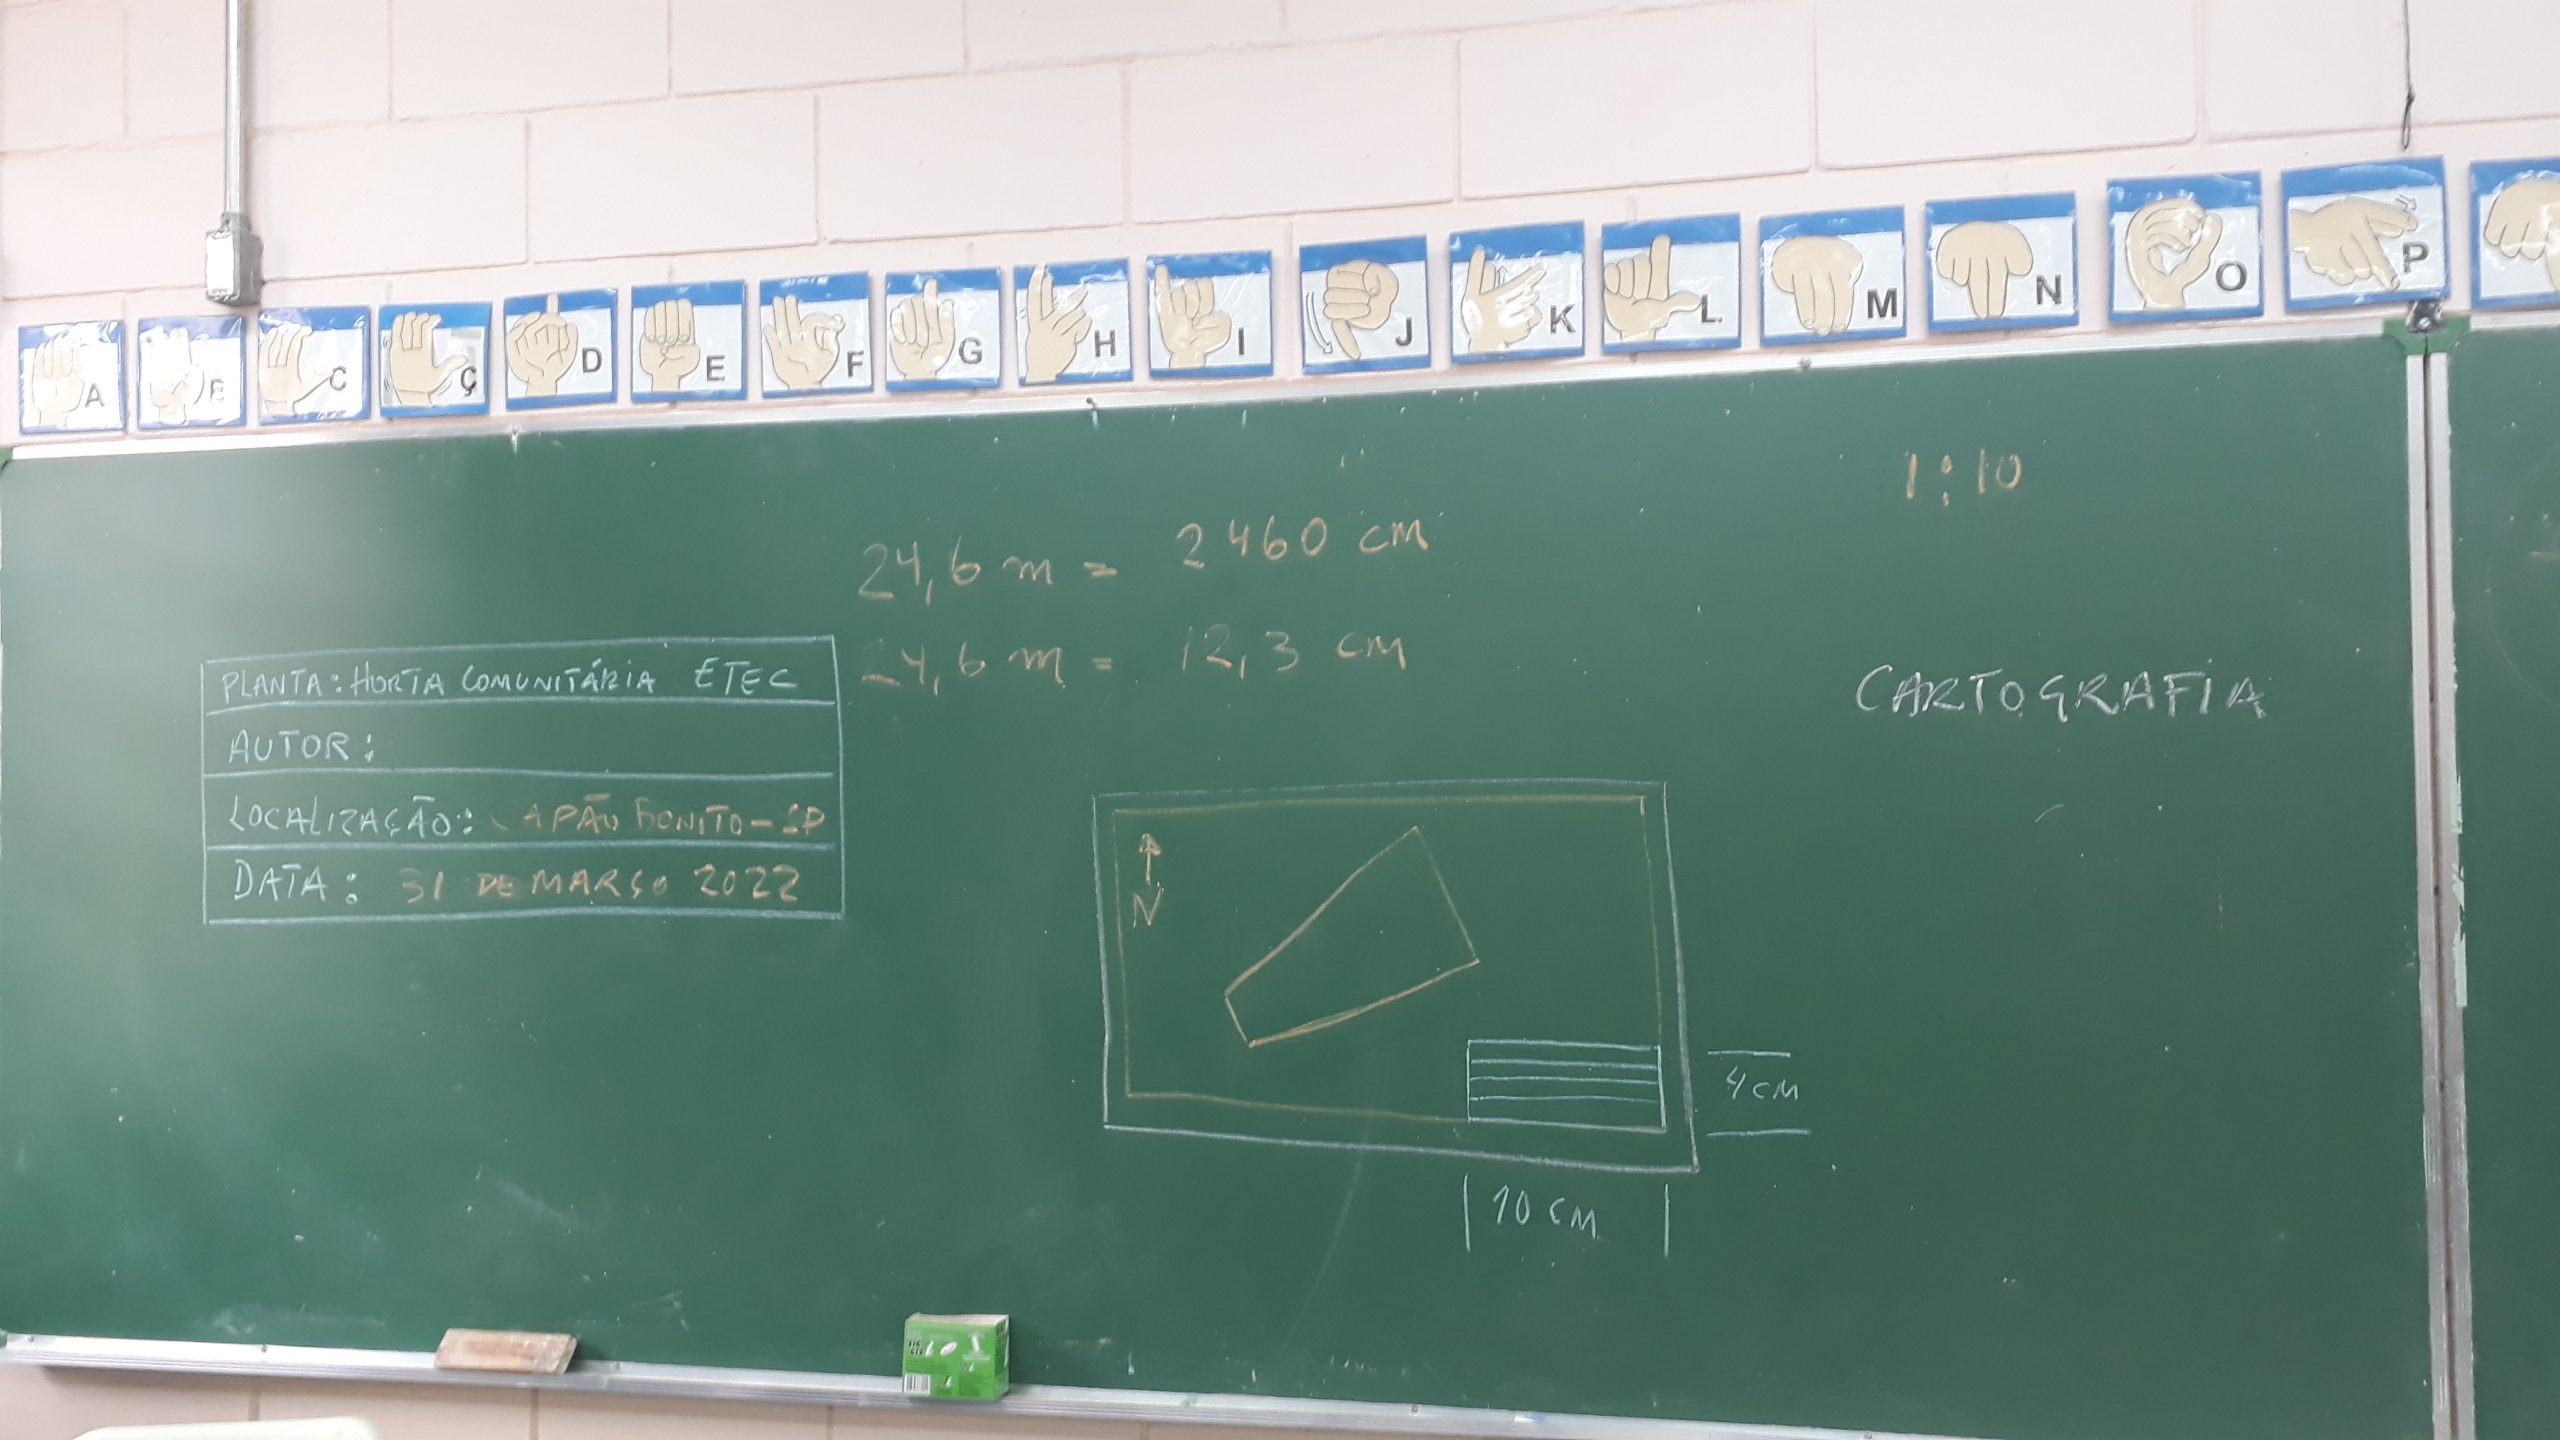 A
B
C
Ç
D
E
F
G
H
I
J
K
L
M
N
O
P
1:10
24,6 m = 2460 cm
24,6 m = 12,3 cm
CARTOGRAFIA
PLANTA: HORTA COMUNITÁRIA ETEC
AUTOR:
LOCALIZAÇÃO: CAPÃO BONITO - SP
DATA: 31 DE MARÇO 2022
N
4 CM
10 CM